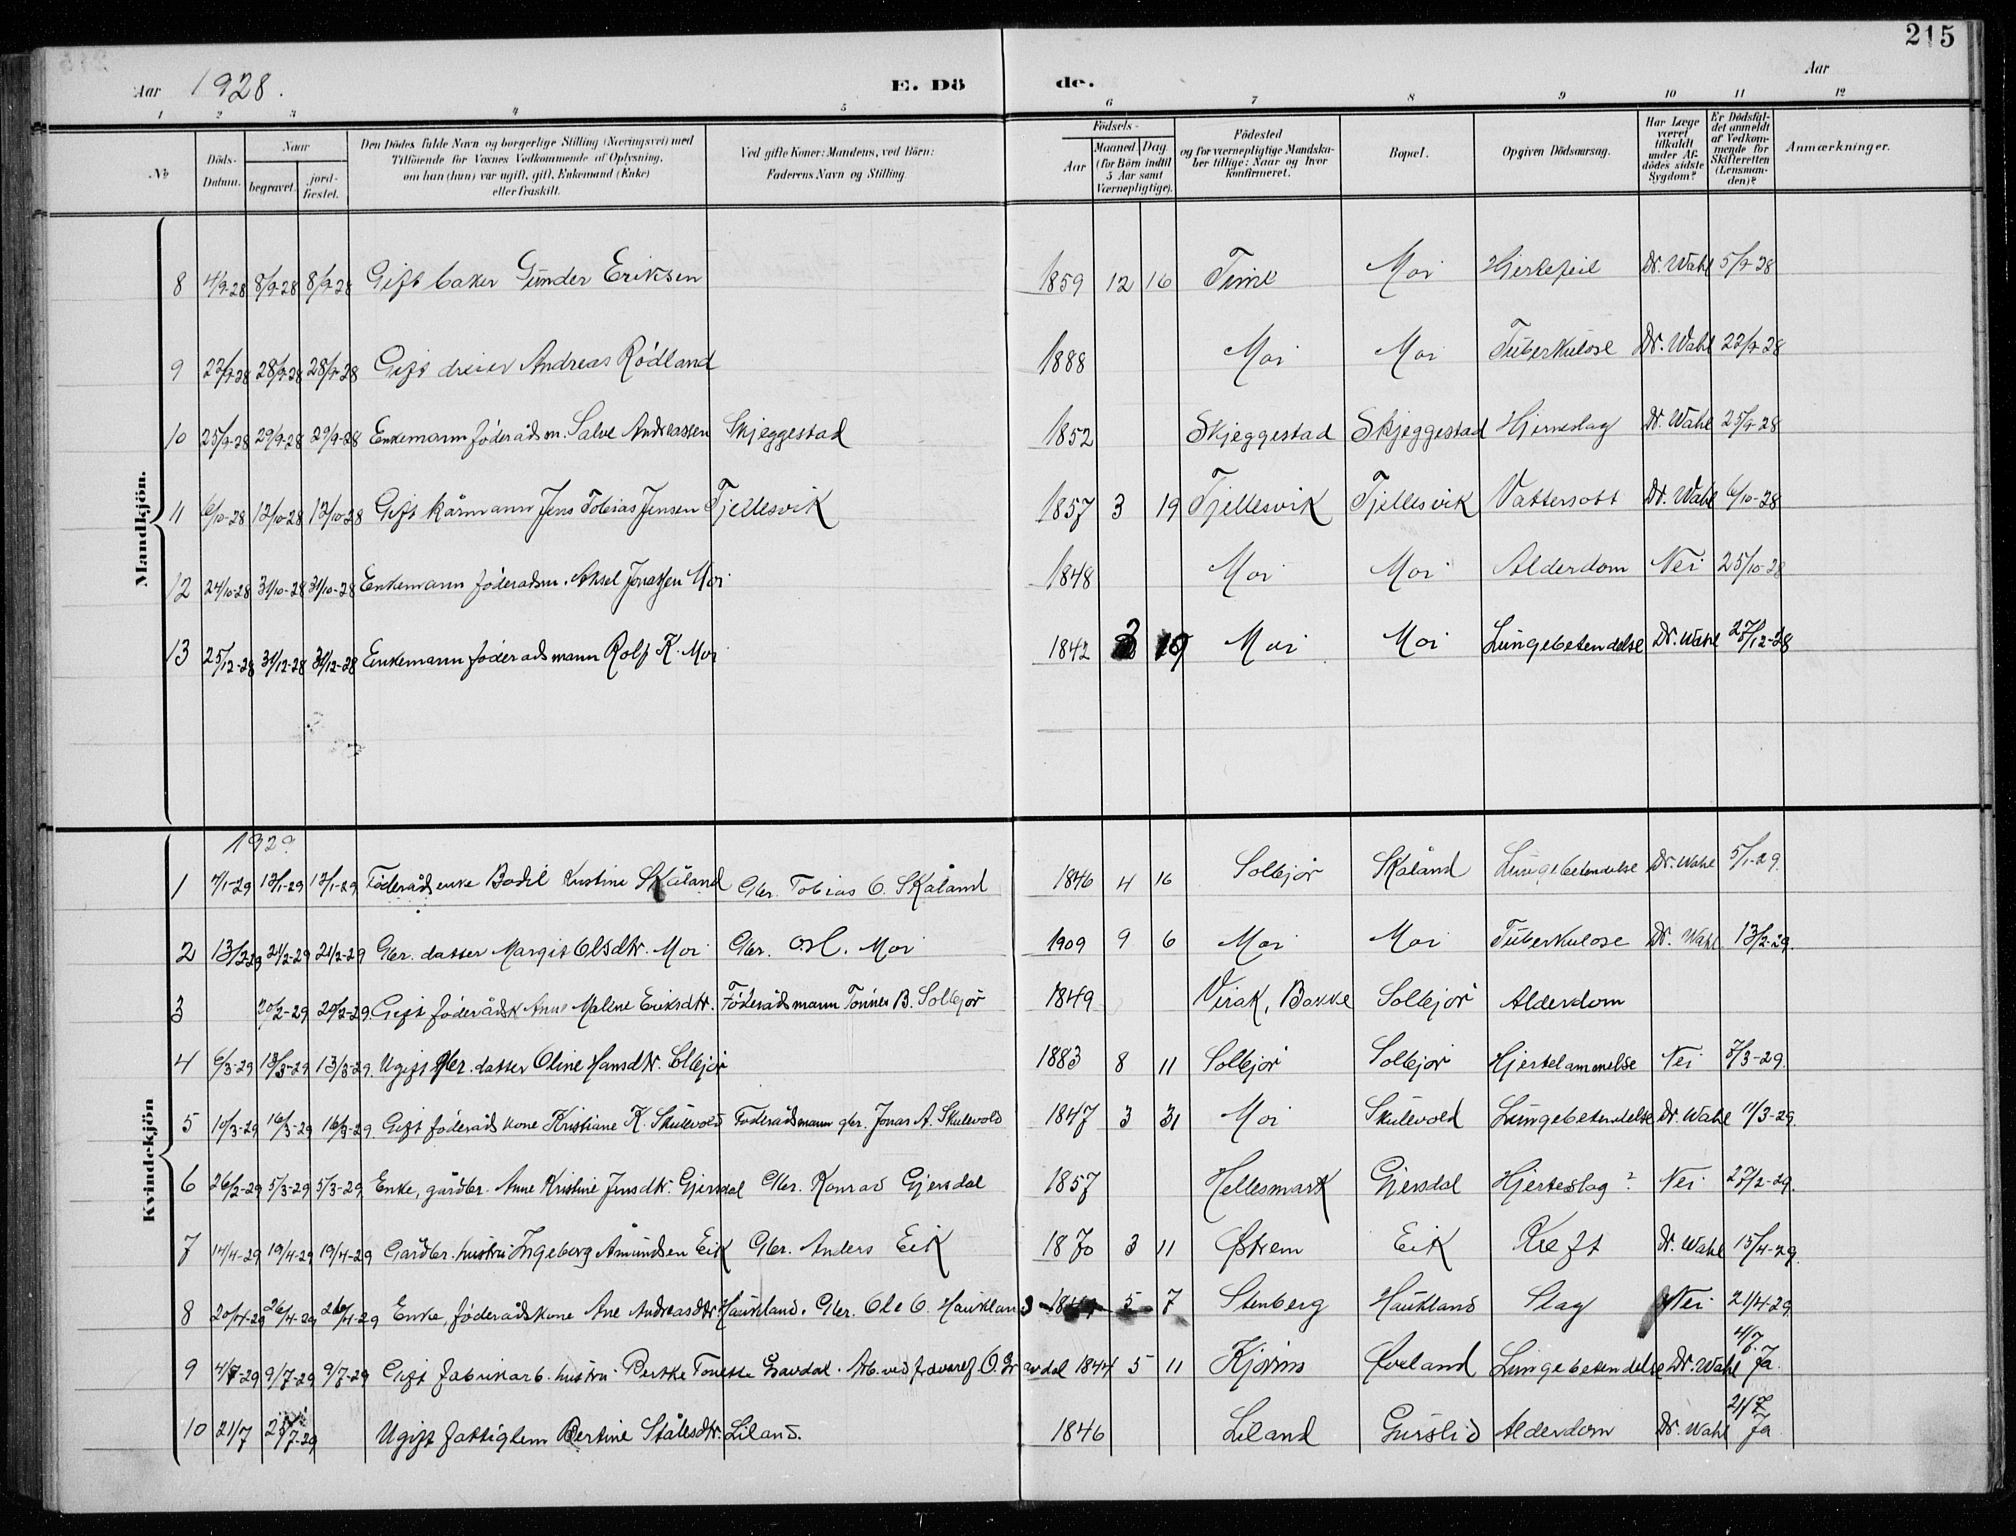 215
Aar 1928. E. Dö de. Aar
1 2 3 4 5 6 7 8 9 10 11 12
No Döds-Datum. Naar begravet. jordfæstet. Den Dödes fulde Navn og borgerlige Stilling (Næringsvei) med Tilföiende for Voxnes Vedkommende af Oplysning, om han (hun) var ugift, gift, Enkemand (Enke) eller fraskilt. Ved gifte Koner: Mandens, ved Börn: Faderens Navn og Stilling. Födsels- Aar Maaned Dag (for Börn indtil 5 Aar samt Værnepligtige). Födested og for værnepligtige Mandskaber tillige: Naar og hvor konfirmeret. Bopæl. Opgiven Dödsaarsag. Har Læge været tilkaldt under Afdödes sidste Sygdom? Er Dödsfaldet anmeldt af Vedkommende for Skifteretten (Lensmanden)? Anmærkninger.
Mandkjön.
8 4/9-28 8/9-28 8/9-28 Gift baker Gunder Eriksen 1859 12 16 Time Moi Hjertefeil Dr. Wahl 5/9-28
9 22/9-28 28/9-28 28/9-28 Gift dreier Andreas Rödland 1888 Moi Moi Tuberkulose Dr. Wahl 22/9-28
10 25/9-28 29/9-28 29/9-28 Enkemann föderådsm. Salve Andreassen Skjeggestad 1852 Skjeggestad Skjeggestad Hjerneslag Dr. Wahl 25/9-28
11 6/10-28 12/10-28 12/10-28 Gift kårmann Jens Tobias Jensen Tjellesvik 1857 3 19 Tjellesvik Tjellesvik Vattersott Dr. Wahl 6/10-28
12 24/10-28 31/10-28 31/10-28 Enkemann föderadsm. Aksel Jonassen Moi 1848 Moi Moi Alderdom Nei 25/10-28
13 25/12-28 31/12-28 31/12-28 Enkemann föderadsmann Rolf K. Moi 1842 3 19 Moi Moi Lungebetendelse Dr. Wahl 27/12-28
Kvindekjön
1929
1 4/1-29 12/1-29 12/1-29 Föderåds enke Bodil Kristine Skåland Gbr. Tobias O. Skåland 1846 4 16 Solbjör Skåland Lungebetendelse Dr. Wahl 5/1-29.
2 13/2-29 21/2-29 21/2-29 Gbr. datter Margit Olsdtr. Moi Gbr. Ol. Moi 1909 9 6 Moi Moi Tuberkulose Dr. Wahl 13/2-29.
3 20/2-29 20/2-29. Gift föderådsk Ane Malene Eriksdtr. Föderådsmann Tönnes B. Solbjör 1849 Virak, Bakke Solbjör Alderdom
4 6/3-29 13/3-29 13/3-29. Ugift gbr. datter Oline Hansdtr. Solbjör 1883 8 11 Solbjör Solbjör Hjertelammelse Nei 7/3-29.
5 10/3-29 16/3-29 16/3-29. Gift föderåds kone Kristiane K. Skulevold Föderådsmann gbr. Jonas A. Skulevold 1847 3 31 Moi Skulevold Lungebetendelse Dr. Wahl 11/3-29.
6 26/2-29 5/3-29 5/3-29 Enke, gårdbr. Anne Kristine Jensdtr. Gjersdal Gbr. Konrad Gjersdal 1857 Hellesmark Gjersdal Hjerteslag? Nei 27/2-29.
7 14/4-29 19/4-29 19/4-29 Gårdbr. hustru Ingeborg Amundsen Eik Gbr. Anders Eik 1870 3 11 Østrem Eik Kreft Dr. Wahl 15/4-29.
8 20/4-29 26/4-29 26/4-29 Enke, föderådskone Ane Andreasdtr. Haukland. Gbr. Ole O. Haukland 5 7 Stenberg Haukland Slag Nei 21/4-29
9 4/7-29 9/7-29 9/7-29 Gift fabrikarb. hustru Bertke Tonette Gravdal. Arb. ved O. Gravdal 1844 5 11 Kjörms Øveland Lungebetendelse Dr. Wahl 4/7. Ja.
10 21/7 27/7-29 Ugift fattiglem Bertine Stålesdtr. Liland. 1846 Liland Gurslid Alderdom Dr. Wahl 21/7 Ja